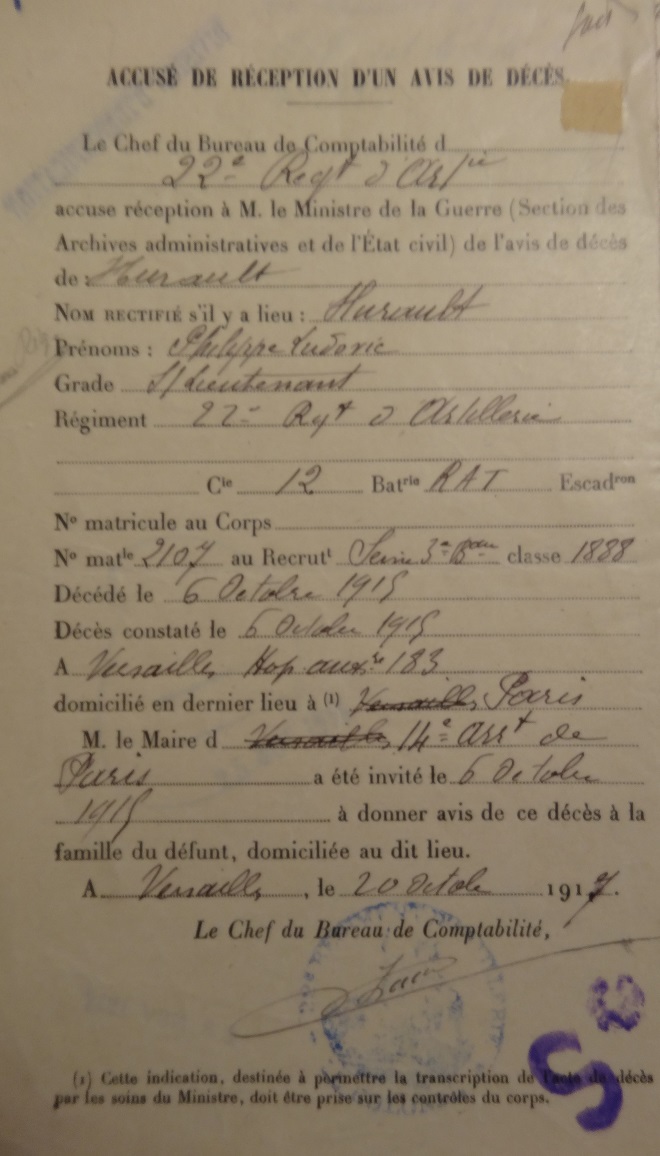 ACCUSÉ DE RÉCEPTION D'UN AVIS DE DÉCÈS.
Le Chef du Bureau de Comptabilité d
22e Regt d'Artie
accuse réception à M. le Ministre de la Guerre (Section des
Archives administratives et de l'État civil) de l'avis de décès
de : Hurault
NOM RECTIFIÉ s'il y a lieu : Hurault
Prénoms : Philippe Ludovic
Grade S/Lieutenant
Régiment 22e Regt d'Artillerie
Cie 12 Batrie RAT Escadron
No matricule au Corps
No matle 2107 au Recrutt Seine 3e Beau classe 1888
Décédé le 6 Octobre 1915
Décès constaté le 6 Octobre 1915
A Versailles Hop auxre 183
domicilié en dernier lieu à (1) Versailles Paris
M. le Maire d Versailles 14e Arrt de
Paris a été invité le 6 Octobre
1915 à donner avis de ce décès à la
famille du défunt, domiciliée au dit lieu.
A Versailles, le 20 Octobre 1917.
Le Chef du Bureau de Comptabilité,
(1) Cette indication, destinée à permettre la transcription de l'acte de décès
par les soins du Ministre, doit être prise sur les contrôles du corps.